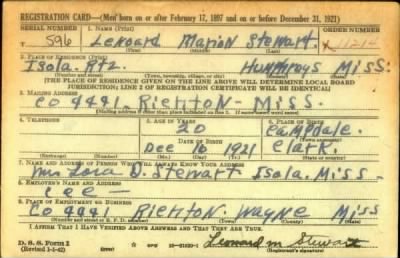 REGISTRATION CARD—(Men born on or after February 17, 1897 and on or before December 31, 1921)
SERIAL NUMBER
1. NAME (Print)
ORDER NUMBER
596
Lenoard Marion Stewart
11214
2. PLACE OF RESIDENCE (Print)
Isola. Rt2. Humphrys Miss.
(Number and street) (Town, township, village, or city) (County) (State)
[THE PLACE OF RESIDENCE GIVEN ON THE LINE ABOVE WILL DETERMINE LOCAL BOARD
JURISDICTION; LINE 2 OF REGISTRATION CERTIFICATE WILL BE IDENTICAL]
3. MAILING ADDRESS
Co 4441. Richton - Miss.
[Mailing address if other than place indicated on line 2. If same insert word same]
4. TELEPHONE
5. AGE IN YEARS
6. PLACE OF BIRTH
20
DATE OF BIRTH
(Town or county)
Dec 16 1921
Clark.
(Exchange) (Number) (Mo.) (Day) (Yr.) (State or country)
7. NAME AND ADDRESS OF PERSON WHO WILL ALWAYS KNOW YOUR ADDRESS
Mrs Lora D. Stewart Isola. Miss.
8. EMPLOYER'S NAME AND ADDRESS
CCC
9. PLACE OF EMPLOYMENT OR BUSINESS
Co 4441 Richton. Wayne Miss
(Number and street or R. F. D. number) (Town) (County) (State)
I AFFIRM THAT I HAVE VERIFIED ABOVE ANSWERS AND THAT THEY ARE TRUE.
D. S. S. Form 1
(Revised 1-1-42)
GPO
Leonard M Stewart
(Registrant's signature)